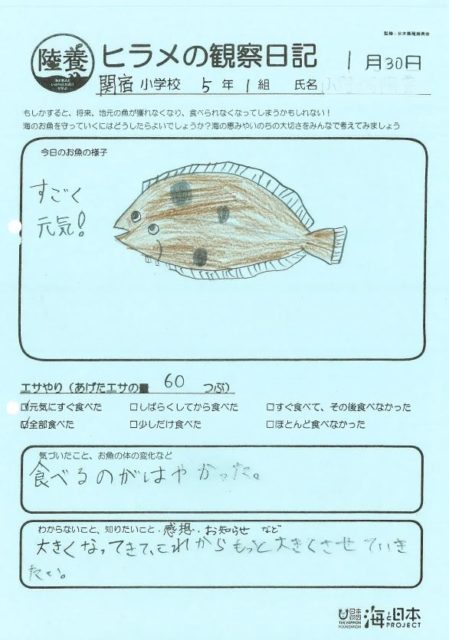 監修:日本養殖振興会
陸養
ヒラメの観察日記 1月30日
関宿小学校 5年1組 氏名
もしかすると、将来、地元の魚が獲れなくなり、食べられなくなってしまうかもしれない!
海のお魚を守っていくにはどうしたらよいでしょうか?海の恵みやいのちの大切さをみんなで考えてみましょう
今日のお魚の様子
すごく
元気!
エサやり(あげたエサの量 60 つぶ)
☑元気にすぐ食べた □しばらくしてから食べた □すぐ食べて、その後食べなかった
☑全部食べた □少しだけ食べた □ほとんど食べなかった
気づいたこと、お魚の体の変化など
食べるのがはやかった。
わからないこと、知りたいこと・感想・お知らせ など
大きくなってきて、これからもっと大きくさせていき
たい。
日本財団 THE NIPPON FOUNDATION 海と日本 PROJECT